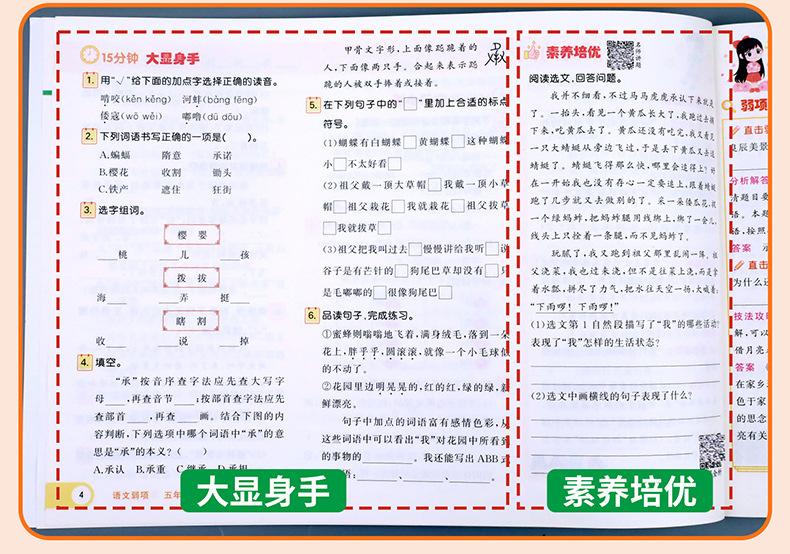 15分钟 大显身手
1. 用“√”给下面的加点字选择正确的读音。
啃咬(kěn kěng) 河蚌(bàng fēng)
倭寇(wō wēi) 嘟噜(dū dōu)
2. 下列词语书写正确的一项是( )。
A.蝙蝠 隋意 承诺
B.樱花 收割 锄头
C.铁产 遮住 狂街
3. 选字组词。
樱 婴
___桃 ___儿 ___孩
拨 拔
海___ ___弄 挺___
瞎 割
收___ ___说 ___掉
4. 填空。
“承”按音序查字法应先查大写字
母___,再查音节___,按部首查字法应先
查部首___,再查___画。结合下图的内
容判断,下列选项中哪个词语中“承”的意
思是“承”的本义?( )
A.承认 B.承重 C.继承 D.承担
甲骨文字形,上面像跽跪着的
人,下面像两只手。合起来表示跽
跪的人被双手捧着或接着。
5. 在下列句子中的“□”里加上合适的标点
符号。
(1)蝴蝶有白蝴蝶□黄蝴蝶□这种蝴蝶
小□不太好看□
(2)祖父戴一顶大草帽□我戴一顶小草
帽□祖父栽花□我就栽花□祖父拔草
□我就拔草□
(3)祖父把我叫过去□慢慢讲给我听□说
谷子是有芒针的□狗尾巴草却没有□只
是毛嘟嘟的□很像狗尾巴□
6. 品读句子,完成练习。
①蜜蜂则嗡嗡地飞着,满身绒毛,落到一朵
花上,胖乎乎,圆滚滚,就像一个小毛球似
的不动了。
②花园里边明晃晃的,红的红,绿的绿,新
鲜漂亮。
句子中加点的词语富有感情色彩,从
这些词语中可以看出“我”对花园中所看到
的事物的________。我还能写出ABB式
4 语文弱项 五年
大显身手
素养培优
名师讲题
阅读选文,回答问题。
我并不细看,不过马马虎虎承认下来就是
了。一抬头,看见一个黄瓜长大了,我跑过去摘
下来,吃黄瓜去了。黄瓜还没有吃完,我又看见
一只大蜻蜓从旁边飞过,于是丢下黄瓜又去追
蜻蜓了。蜻蜓飞得那么快,哪里会追得上?好
在一开始我也没有存心一定要追上,跟着蜻蜓
跑了几步就又去做别的了。采一朵倭瓜花,捉
一个绿蚂蚱,把蚂蚱腿用线绑上,绑了一会儿,
线头上只拴着一条腿,而不见蚂蚱了。
玩腻了,我又跑到祖父那里乱闹一阵。祖
父浇菜,我也过来浇,但不是往菜上浇,而是拿
着水瓢,拼尽了力气,把水往天空一扬,大喊着:
“下雨啰!下雨啰!”
(1)选文第1自然段描写了“我”的哪些活动?
表现了“我”怎样的生活状态?
(2)选文中画横线的句子表现了什么?
素养培优
弱项
直击
良辰美景
分析解答
清题目要
答案
直击
为什么还
技法攻略
答案